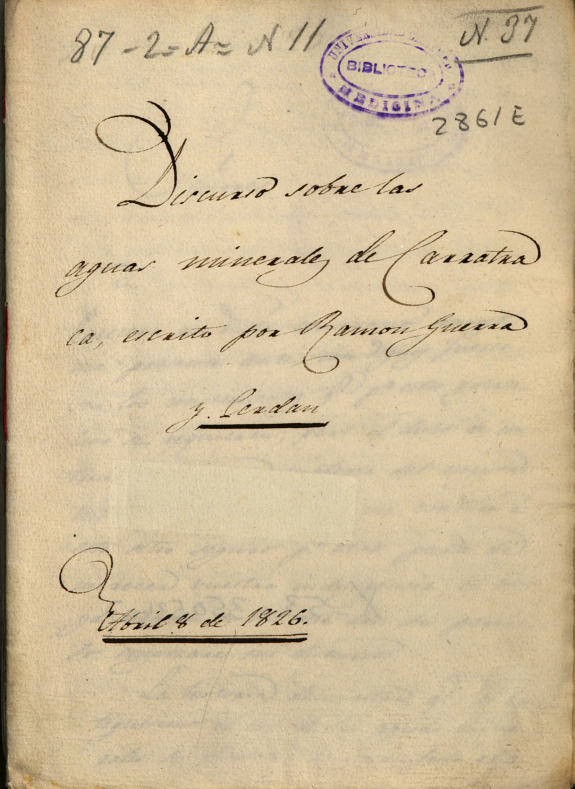 87-2=A=N11
N. 37
BIBLIOTECA
MEDICINA
2861E
Discurso sobre las
aguas minerales de Carratra
ca, escrito por Ramon Guerra
y Cerdan
Abril 8 de 1826.